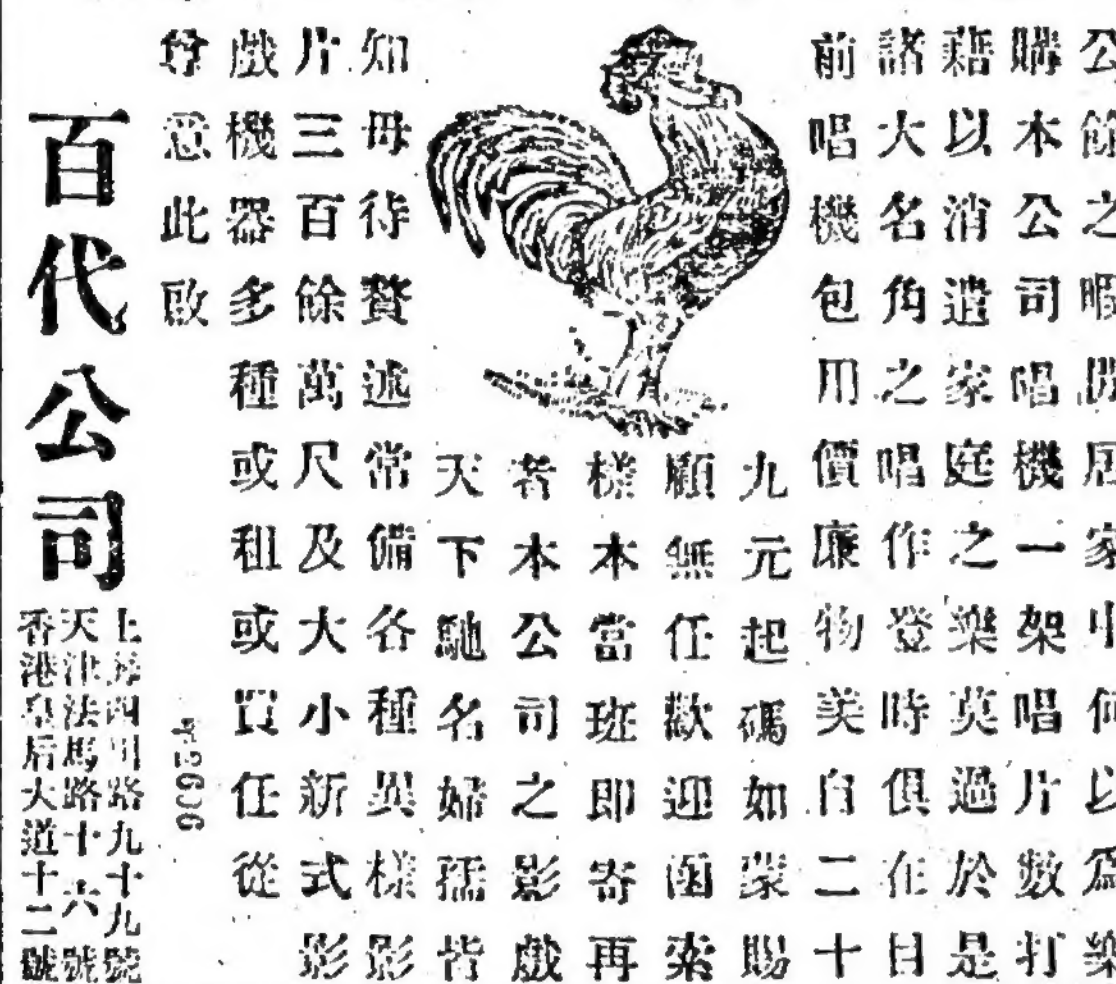 公餘之暇閒居家中何以為樂
購本公司唱機一架唱片數打
藉以消遣家庭之樂莫過於是
諸大名角之唱作登時俱在目
前唱機包用價廉物美自二十
九元起碼如蒙賜
顧無任歡迎函索
樣本當班即寄再
者本公司之影戲
天下馳名婦孺皆
知毋待贅述常備各種異樣影
片三百餘萬尺及大小新式影
戲機器多種或租或買任從
尊意此啟
百代公司
上海四川路九十九號
天津法馬路十六號
香港皇后大道十二號